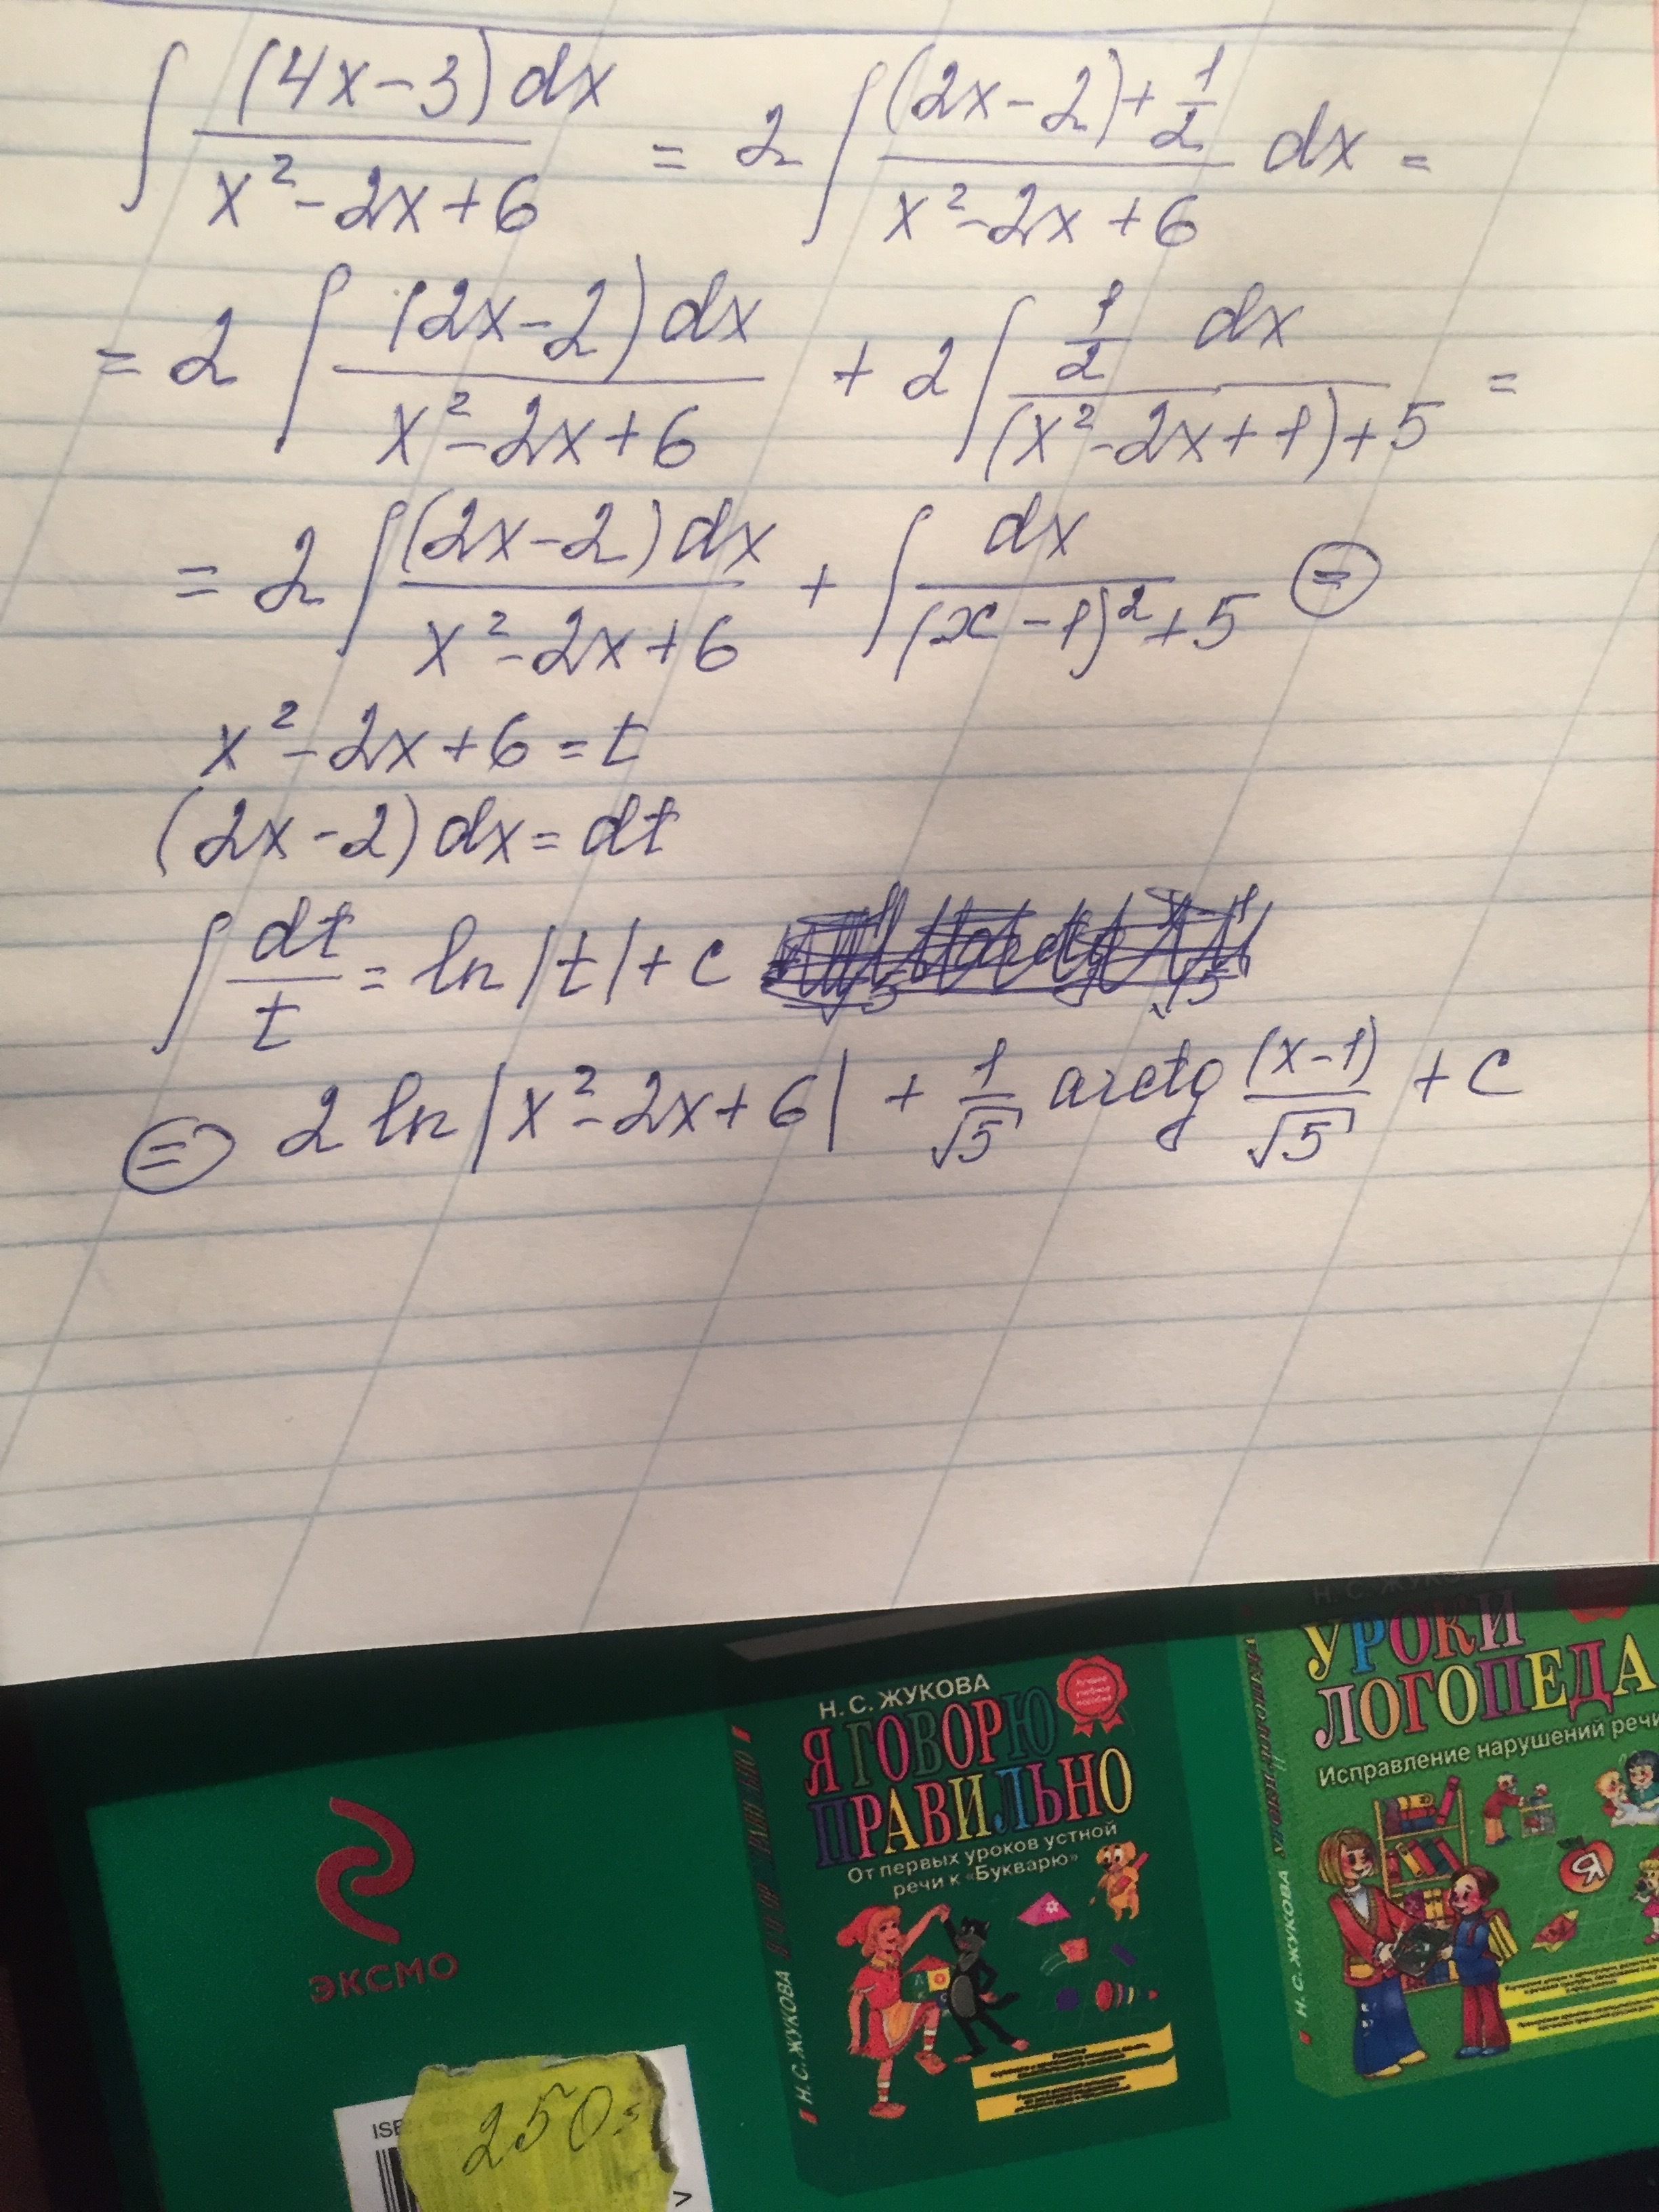 ∫ (4x-3)dx / x²-2x+6 = 2 ∫ (2x-2)+ 1/2 / x²-2x+6 dx =
= 2 ∫ (2x-2)dx / x²-2x+6 + 2 ∫ 1/2 dx / (x²-2x+1)+5 =
= 2 ∫ (2x-2)dx / x²-2x+6 + ∫ dx / (x-1)²+5 ⊜
x²-2x+6=t
(2x-2)dx=dt
∫ dt/t = ln|t|+c
⊜ 2 ln|x²-2x+6| + 1/√5 arctg (x-1)/√5 + c
Н. С. ЖУКОВА
Я ГОВОРЮ
ПРАВИЛЬНО
От первых уроков устной
речи к «Букварю»
Н. С. ЖУКОВА
Н. С. ЖУКОВА
УРОКИ
ЛОГОПЕДА
Исправление нарушений речи
Н. С. ЖУКОВА
ЭКСМО
ISB
250=
>